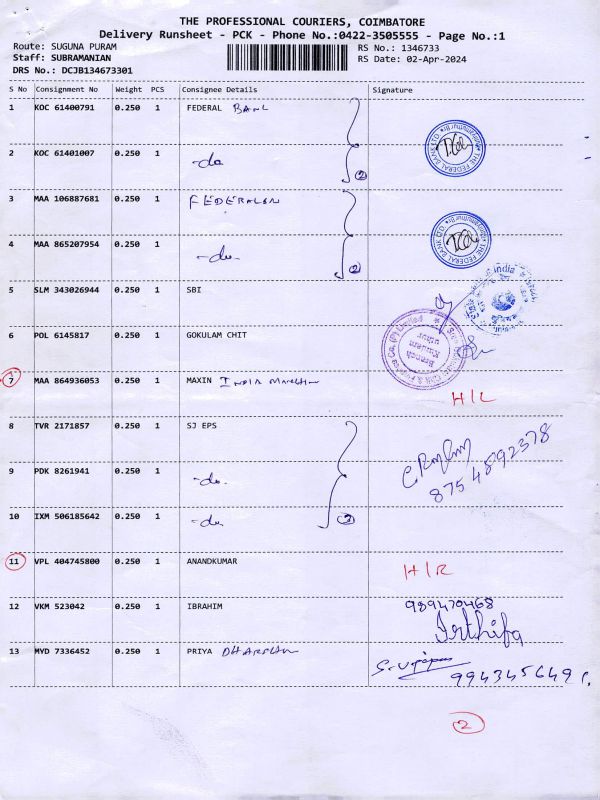 THE PROFESSIONAL COURIERS, COIMBATORE
Delivery Runsheet - PCK - Phone No.:0422-3505555 - Page No.:1
Route: SUGUNA PURAM
Staff: SUBRAMANIAN
DRS No.: DCJB134673301
RS No.: 1346733
RS Date: 02-Apr-2024
S No Consignment No Weight PCS Consignee Details Signature
1 KOC 61400791 0.250 1 FEDERAL BANK
2 KOC 61401007 0.250 1 -do
THE FEDERAL BANK LTD.
3 MAA 106887681 0.250 1 FEDERAL
4 MAA 865207954 0.250 1 -do-
THE FEDERAL BANK LTD.
5 SLM 343026944 0.250 1 SBI
6 POL 6145817 0.250 1 GOKULAM CHIT
7 MAA 864936053 0.250 1 MAXIN INDIA H/L
8 TVR 2171857 0.250 1 SJ EPS
9 PDK 8261941 0.250 1 -do- 8754892378
10 IXM 506185642 0.250 1 -do
11 VPL 404745800 0.250 1 ANANDKUMAR H/R
12 VKM 523042 0.250 1 IBRAHIM 989470468
Irthifa
13 MYD 7336452 0.250 1 PRIYA DHARSHAN
9943456491
2